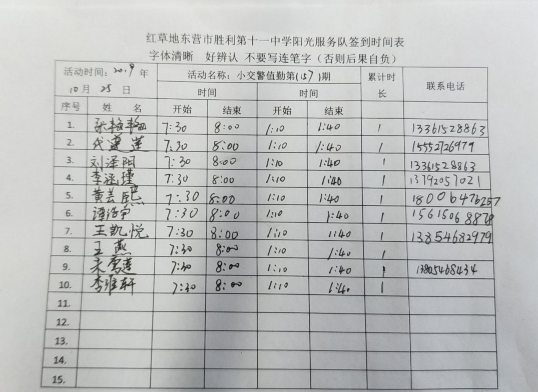 红草地东营市胜利第十一中学阳光服务队签到时间表
字体清晰 好辨认 不要写连笔字（否则后果自负）
活动时间：2019年 活动名称：小交警值勤第(157)期 累计时长 联系电话
10月25日 时间 时间
序号 姓名 开始 结束 开始 结束
1. 张艳艳 7:30 8:00 1:10 1:40 1 13361528863
2. 7:30 8:00 1:10 1:40 1 15552726979
3. 刘泽阳 7:30 8:00 1:10 1:40 1 13361528863
4. 7:30 8:00 1:10 1:40 1 13792057021
5. 7:30 8:00 1:10 1:40 1
6. 7:30 8:00 1:10 1:40 1 15615068878
7. 王凯悦 7:30 8:00 1:10 1:40 1 13854682979
8. 王燕 7:30 8:00 1:10 1:40 1
9. 7:30 8:00 1:10 1:40 1 13805468434
10. 7:30 8:00 1:10 1:40 1
11.
12.
13.
14.
15.